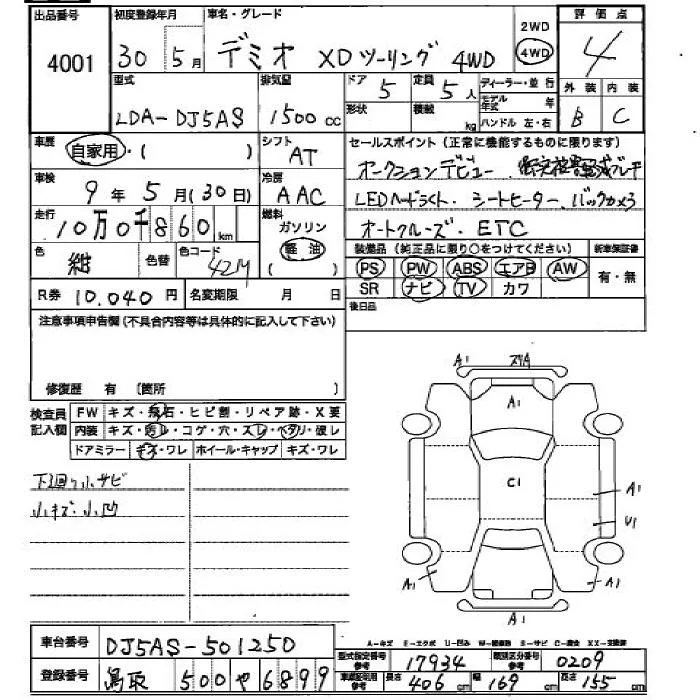 出品番号 初度登録年月 車名・グレード 2WD 評価点
4001 30年 5月 デミオ XDツーリング 4WD 4WD 4
型式 排気量 ドア 定員 ディーラー・並行 外装 内装
LDA-DJ5AS 1500cc 5 5人 モデル年式 年 B C
形状 積載 kg ハンドル 左・右
車歴 シフト セールスポイント(正常に機能するものに限ります)
自家用・( ) AT オークションデビュー
車検 冷房
9年 5月(30日) AAC LEDヘッドライト・シートヒーター、バックカメラ
走行 燃料
10万0千860km ガソリン オートクルーズ・ETC
軽油
( )
色 色替 色コード 装備品(純正品に限り○をつけてください) 新車保証書
紺 42M PS PW ABS エアB AW 有・無
R券 10.040円 名変期限 月 日 SR ナビ TV カワ
注意事項申告欄(不具合内容等は具体的に記入して下さい) 後日品
修復歴 有 (箇所 )
検査員記入欄 FW キズ・飛石・ヒビ割・リペア跡・X要
内装 キズ・汚レ・コゲ・穴・スレ・ヘタリ・破レ
ドアミラー キズ・ワレ ホイール・キャップ キズ・ワレ
下廻り小サビ
小キズ・小凹
A1
A1
C1
A1
U1
A1 A1
A1
A-キズ E-エクボ U-凹み W-補修跡 S-サビ C-腐食 XX-交換済
車台番号 DJ5AS-501250
型式指定番号 参考 17934 類別区分番号 参考 0209
登録番号 鳥取 500 や 6899
車庫証明用 参考 長さ 406cm 幅 169cm 高さ 155cm